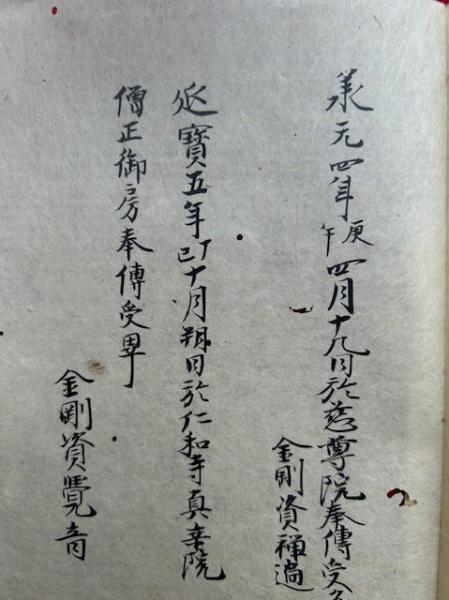 承元四年庚午四月十九日於慈尊院奉傳受
金剛資禅遍
延寶五年丁巳十月朔日於仁和寺真乗院
僧正御房奉傳受畢
金剛資覺音